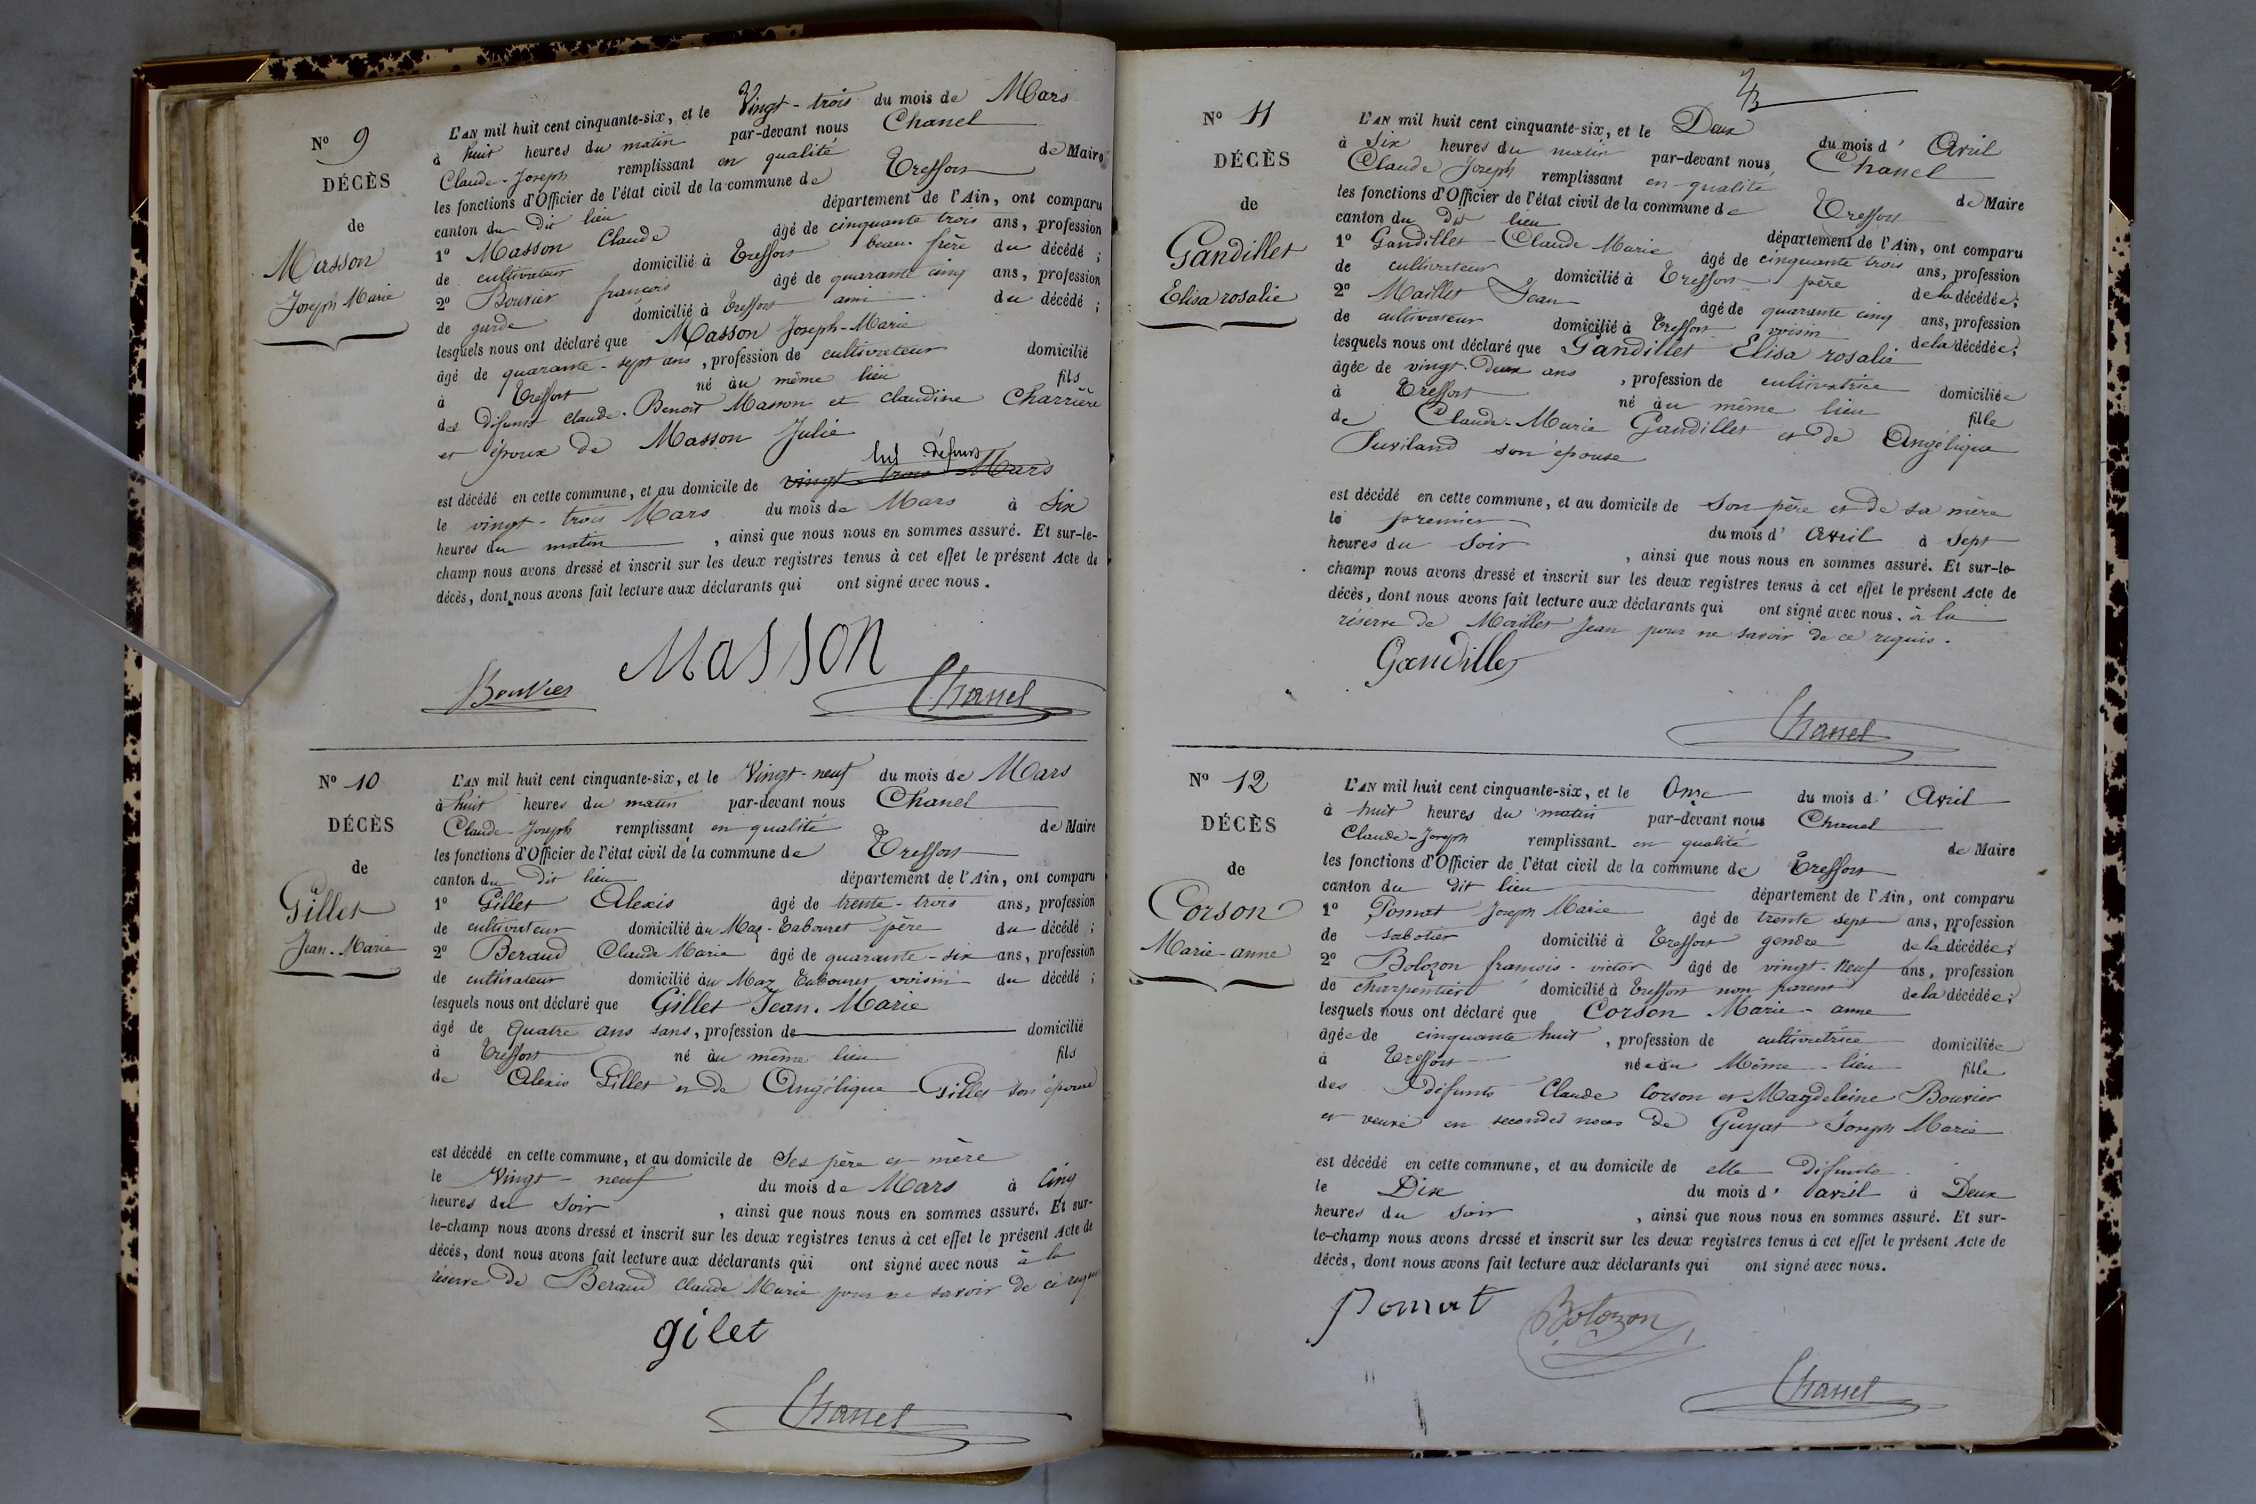 N° 9
DÉCÈS
de
Masson
Joseph Marie
L'AN mil huit cent cinquante-six, et le Vingt-trois du mois de Mars
à huit heures du matin par-devant nous Chanel
Claude-Joseph remplissant en qualité de Maire
les fonctions d'Officier de l'état civil de la commune de Treffort
canton du dit lieu département de l'Ain, ont comparu
1° Masson Claude âgé de cinquante trois ans, profession
de cultivateur domicilié à Treffort beau-frère du décédé ;
2° Bouvier françois âgé de quarante cinq ans, profession
de garde domicilié à Treffort ami du décédé ;
lesquels nous ont déclaré que Masson Joseph-Marie
âgé de quarante-sept ans, profession de cultivateur domicilié
à Treffort né au même lieu fils
des défunts Claude-Benoit Masson et claudine Charrière
et époux de Masson Julie
lui défunt
est décédé en cette commune, et au domicile de vingt-trois Mars
le vingt-trois Mars du mois de Mars à Six
heures du matin, ainsi que nous nous en sommes assuré. Et sur-le-
champ nous avons dressé et inscrit sur les deux registres tenus à cet effet le présent Acte de
décès, dont nous avons fait lecture aux déclarants qui ont signé avec nous.
Masson
Bouvier
Chanel
N° 10
DÉCÈS
de
Gillet
Jean-Marie
L'AN mil huit cent cinquante-six, et le Vingt-neuf du mois de Mars
à huit heures du matin par-devant nous Chanel
Claude-Joseph remplissant en qualité de Maire
les fonctions d'Officier de l'état civil de la commune de Treffort
canton du dit lieu département de l'Ain, ont comparu
1° Gillet Alexis âgé de trente-trois ans, profession
de cultivateur domicilié au Maz-Tabouret père du décédé ;
2° Beraud Claude Marie âgé de quarante-six ans, profession
de cultivateur domicilié au Maz Tabouret voisin du décédé ;
lesquels nous ont déclaré que Gillet Jean-Marie
âgé de quatre ans sans, profession de domicilié
à Treffort né au même lieu fils
de Alexis Gillet et de Angélique Gillet son épouse
est décédé en cette commune, et au domicile de Ses père et mère
le Vingt-neuf du mois de Mars à Cinq
heures du Soir, ainsi que nous nous en sommes assuré. Et sur-
le-champ nous avons dressé et inscrit sur les deux registres tenus à cet effet le présent Acte de
décès, dont nous avons fait lecture aux déclarants qui ont signé avec nous à la
réserve de Beraud Claude Marie pour ne savoir de ce requis
gilet
Chanel
N° 11
DÉCÈS
de
Gandillet
Elisa rosalie
L'AN mil huit cent cinquante-six, et le Deux du mois d'Avril
à Six heures du matin par-devant nous, Chanel
Claude Joseph remplissant en qualité de Maire
les fonctions d'Officier de l'état civil de la commune de Treffort
canton du dit lieu département de l'Ain, ont comparu
1° Gandillet Claude Marie âgé de cinquante trois ans, profession
de cultivateur domicilié à Treffort père de la décédée ;
2° Maillet Jean âgé de quarante cinq ans, profession
de cultivateur domicilié à Treffort voisin de la décédée ;
lesquels nous ont déclaré que Gandillet Elisa rosalie
âgée de vingt-Deux ans, profession de cultivatrice domiciliée
à Treffort né au même lieu fille
de Claude-Marie Gandillet et de Angélique
son épouse
est décédé en cette commune, et au domicile de Son père et de sa mère
le premier du mois d'avril à Sept
heures du Soir, ainsi que nous nous en sommes assuré. Et sur-le-
champ nous avons dressé et inscrit sur les deux registres tenus à cet effet le présent Acte de
décès, dont nous avons fait lecture aux déclarants qui ont signé avec nous. à la
réserve de Maillet Jean pour ne savoir de ce requis.
Gandillet
Chanel
N° 12
DÉCÈS
de
Corson
Marie-anne
L'AN mil huit cent cinquante-six, et le Onze du mois d'Avril
à huit heures du matin par-devant nous Chanel
Claude-Joseph remplissant en qualité de Maire
les fonctions d'Officier de l'état civil de la commune de Treffort
canton du dit lieu département de l'Ain, ont comparu
1° Pomat Joseph Marie âgé de trente sept ans, profession
de sabotier domicilié à Treffort gendre de la décédée ;
2° Bolozon francois-victor âgé de vingt-neuf ans, profession
de charpentier domicilié à Treffort non parent de la décédée ;
lesquels nous ont déclaré que Corson Marie-anne
âgée de cinquante huit, profession de cultivatrice domiciliée
à Treffort née au Même lieu fille
des défunts Claude Corson et Magdeleine Bouvier
et veuve en secondes noces de Guyat Joseph Marie
est décédé en cette commune, et au domicile de elle défunte
le Dix du mois d'avril à Deux
heures du Soir, ainsi que nous nous en sommes assuré. Et sur-
le-champ nous avons dressé et inscrit sur les deux registres tenus à cet effet le présent Acte de
décès, dont nous avons fait lecture aux déclarants qui ont signé avec nous.
Pomat Bolozon
Chanel